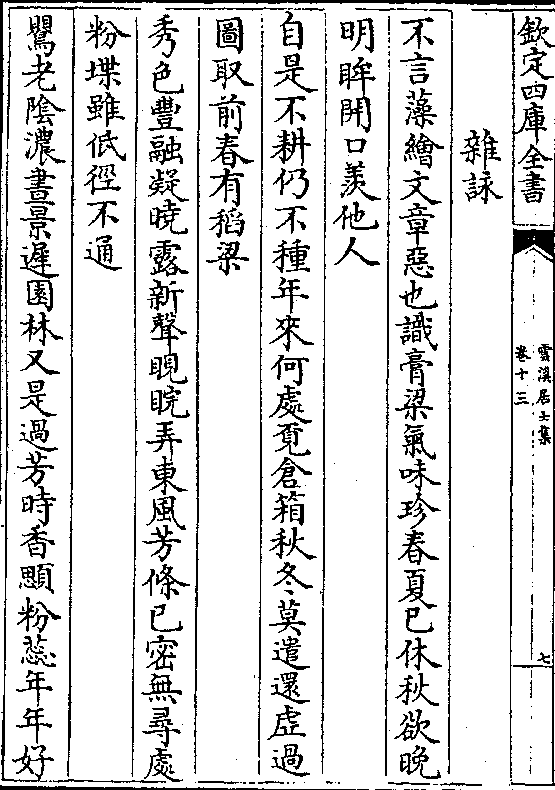 欽定四庫全書
雲溪居士集
卷十三
七
雜詠
不言藻繪文章惡也識膏梁氣味珍春夏已休秋欲晚
明眸開口羨他人
自是不耕仍不種年來何處覓倉箱秋冬莫遣還虛過
圖取前春有稻梁
秀色豐融凝曉露新聲睍睆弄東風芳條已密無尋處
粉堞雖低徑不通
鸎老陰濃晝景遲園林又是過芳時香顋粉蕊年年好